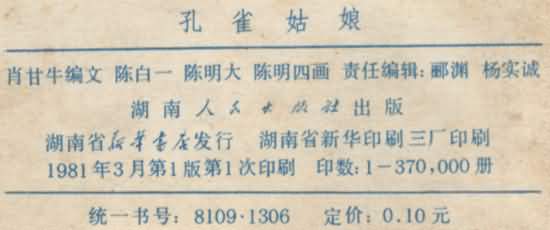 孔雀姑娘
肖甘牛编文 陈白一 陈明大 陈明四画 责任编辑:郦渊 杨实诚
湖南人民出版社出版
湖南省新华书店发行 湖南省新华印刷三厂印刷
1981年3月第1版第1次印刷 印数:1-370,000册
统一书号:8109·1306 定价:0.10元